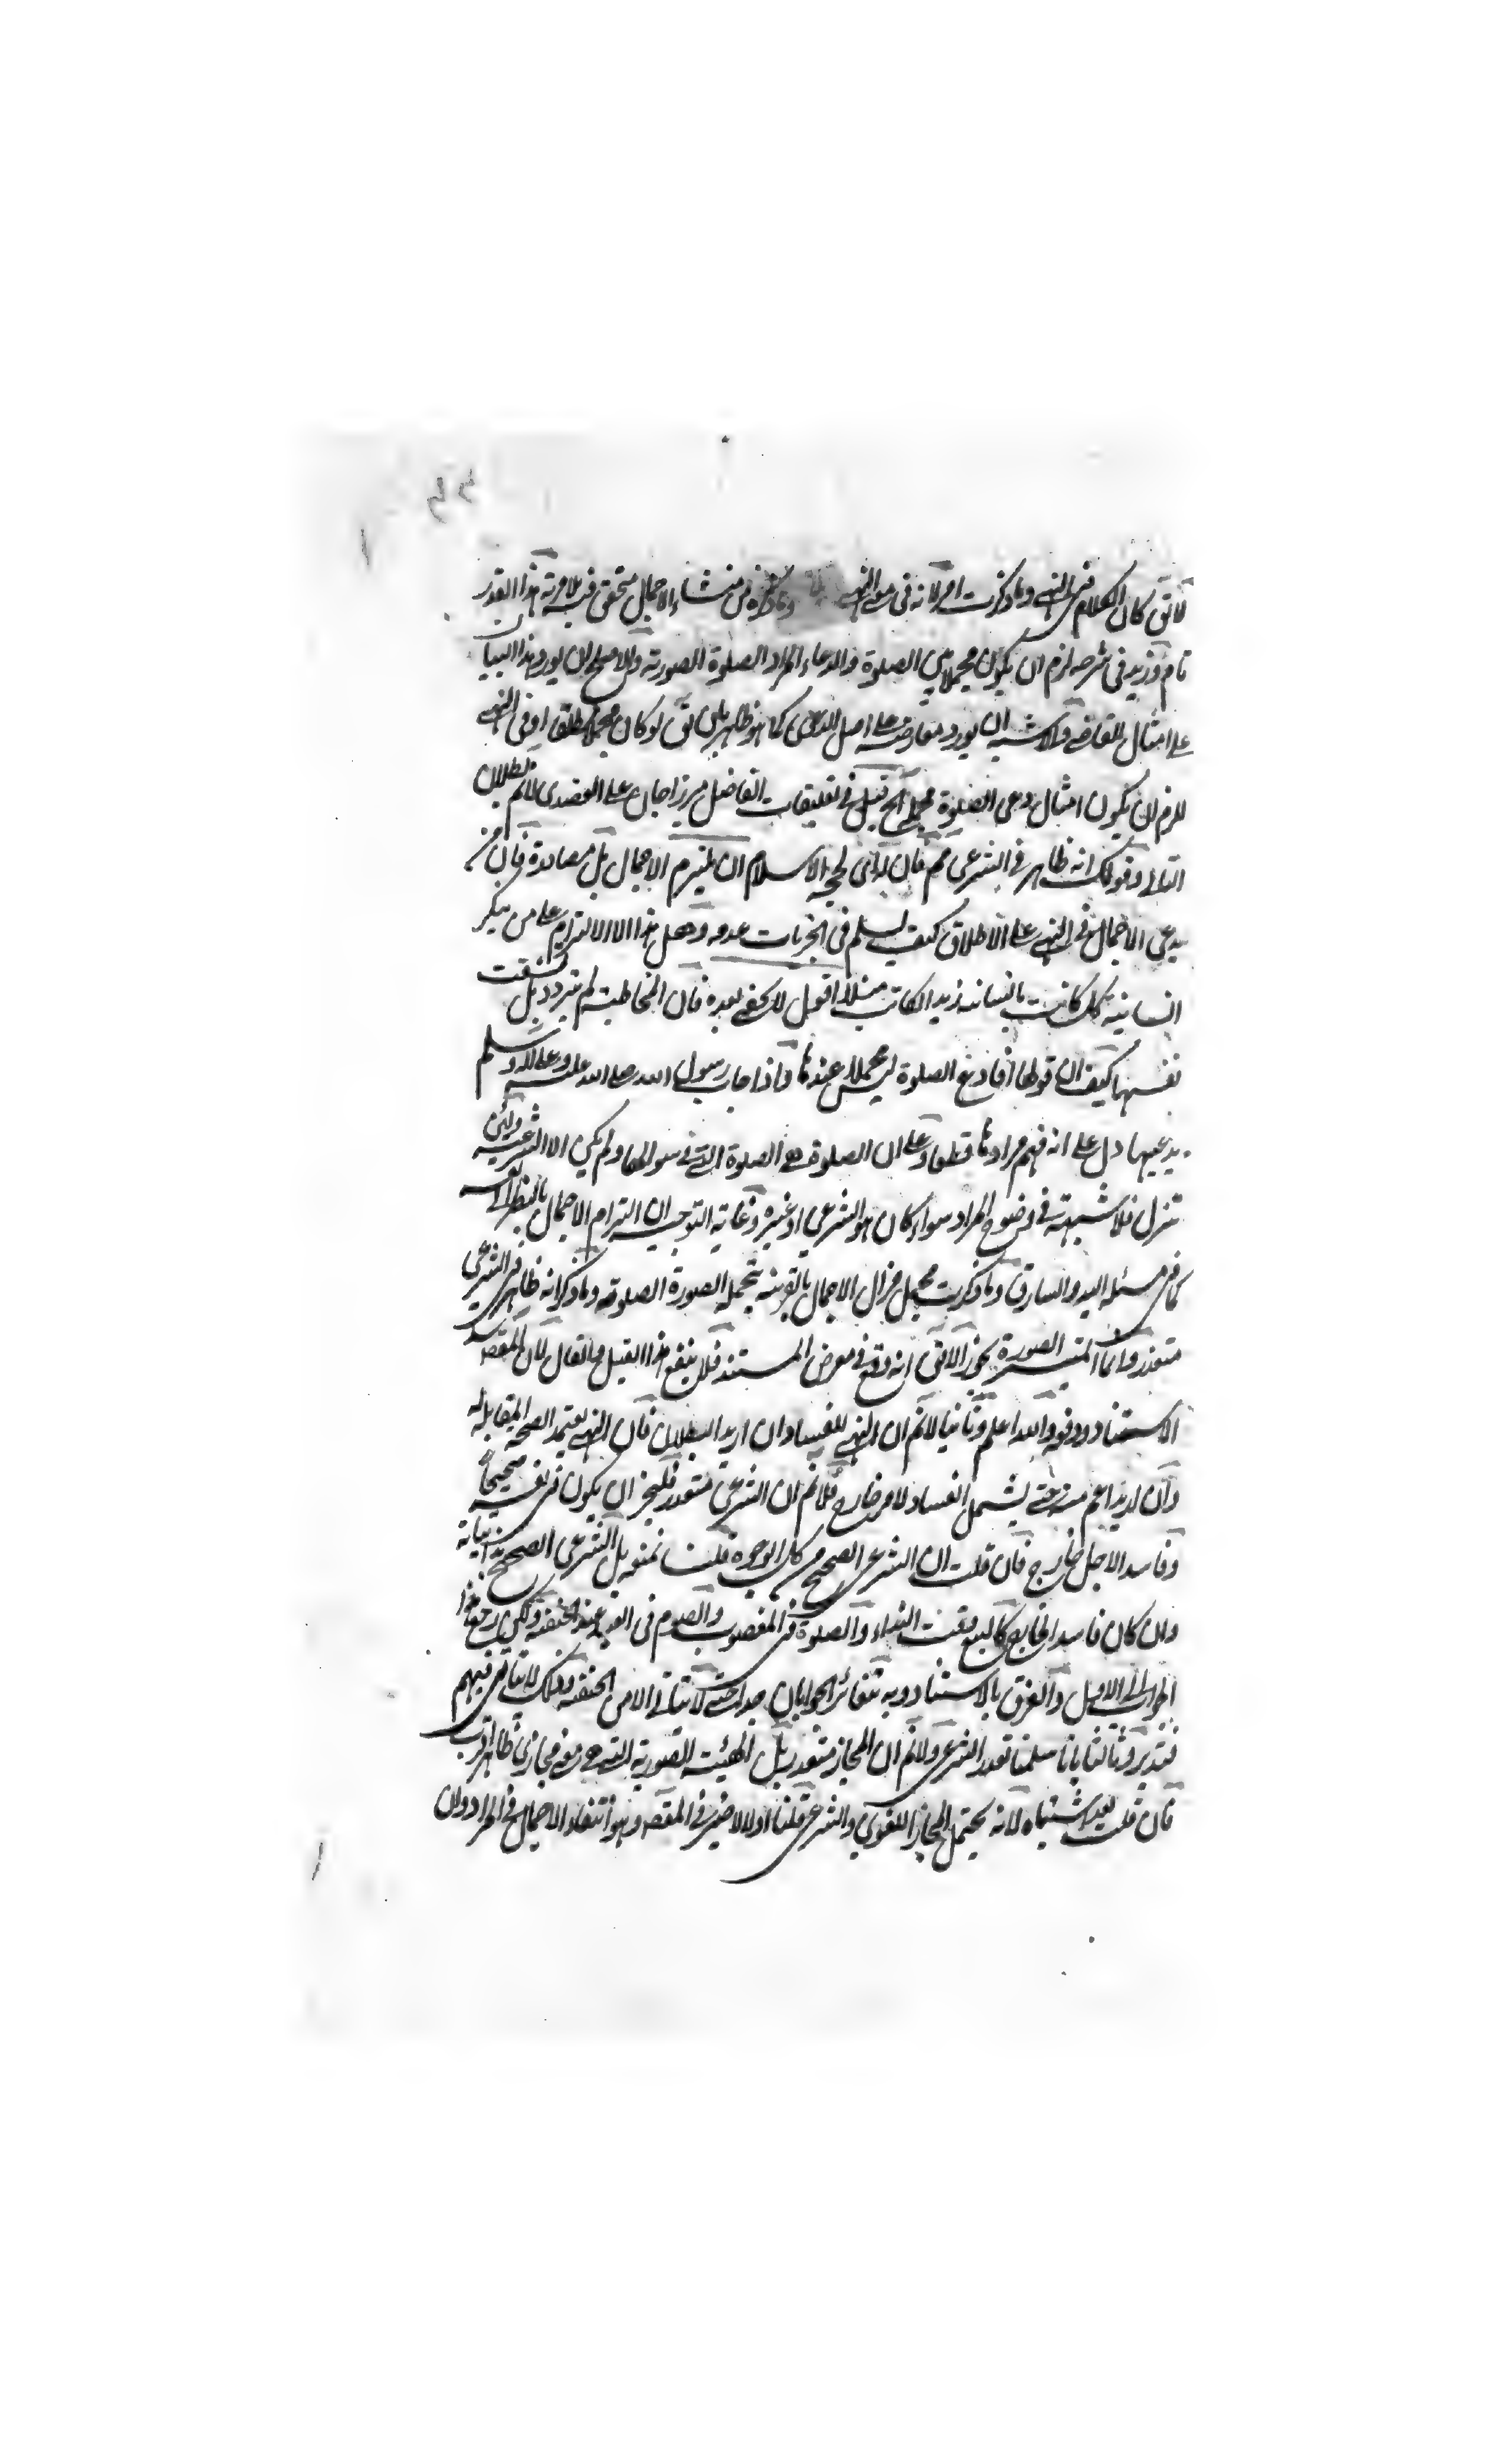 لا تق كان الكلام في النهي وما ذكرت امر لانه في معنى النهي وما ذكره من منشاء الاجمال متحقق فيه بلا مرية هذا القدر
تام وزيد في شرحه لزم ان يكون مجملا بين الصلوة والدعاء المراد الصلوة الصورية والاصلح ان يورد هذا البيا
على امثال القاضي والاشبه ان يورد معارضة على اصل الدعوى كما هو ظاهر بان تق لو كان مجملا مطلقا او في النهي
لزم ان يكون امثال دعى الصلوة مجملا الخ قيل في تعليقات الفاضل ميرزا جان على العضدى لانم بطلان
التالى وقولك انه ظاهر في الشرعى مم فان لحجة الاسلام ان يلتزم الاجمال بل مصادرة فان من
يدعى الاجمال في النهي على الاطلاق كيف يسلم في الجزئيات عدمه وهل هذا الا الالتزام على من ينكر
انسانية كل كاتب بانسانية زيد الكاتب مثلا اقول لا يخفى بعده فان المخاطبة لم تتردد بل
نفسها كيف ان قولها افادع الصلوة ليس مجملا عندها واذا اجاب رسول الله صلى الله عليه وعلى آله وسلم
يدعيها دل على انه فهم مرادها قطعا وعلى ان الصلوة هي الصلوة التي في سوالها ولم يكن الا الشرعية ولئن
تنزل فلا شبهة في وضوح المراد سواء كان هو الشرعى او غيره وغاية التوجيه ان التزام الاجمال بالنظر الى نفسه
كما في مسئلة اليد والسارق وما ذكرت مجمل فزال الاجمال بالقرينة الصورة وما ذكر انه ظاهر في الشرعى
متعذر وانما الصورة الا تق انه وقع في معرض المستند فلا ينفع هذا القيل والقال لان المقصد
الاستناد ودفعه والله اعلم وثانيا لانم ان النهي للفساد ان اريد البطلان فان النهي يعتمد الصحة المقابلة
وان اريد اعم منه حتى يشمل الفساد لامر خارج فلانم ان الشرعى متعذر فليجز ان يكون في نفسه صحيحا
وفاسدا لاجل خارج فان قلت ان الشرعى الصحيح من كل الوجوه قلنا نمنعه بل الشرعى الصحيح
وان كان فاسدا كالبيع وقت النداء والصلوة في المغصوب والصوم في العيد عند الحنفية ولكن رجع هذا
الجواب الى الاول والفرق بالاستناد وبه تتغائر الجوابان جدا حتى لا يتاتى الا من الحنفية وذلك لا يتاتى فيهم
فتدبر وثالثا بانا سلمنا تعذر الشرعى ولانم ان المجاز متعذر بل الهيئة الصورية التي هي معنى مجازى ظاهر اقرب
فان قلت بعد اشتباه لانه يحتمل المجاز اللغوى والشرعى قلنا اولا لا ضير في المقصد وهو انتفاء الاجمال في المراد وان